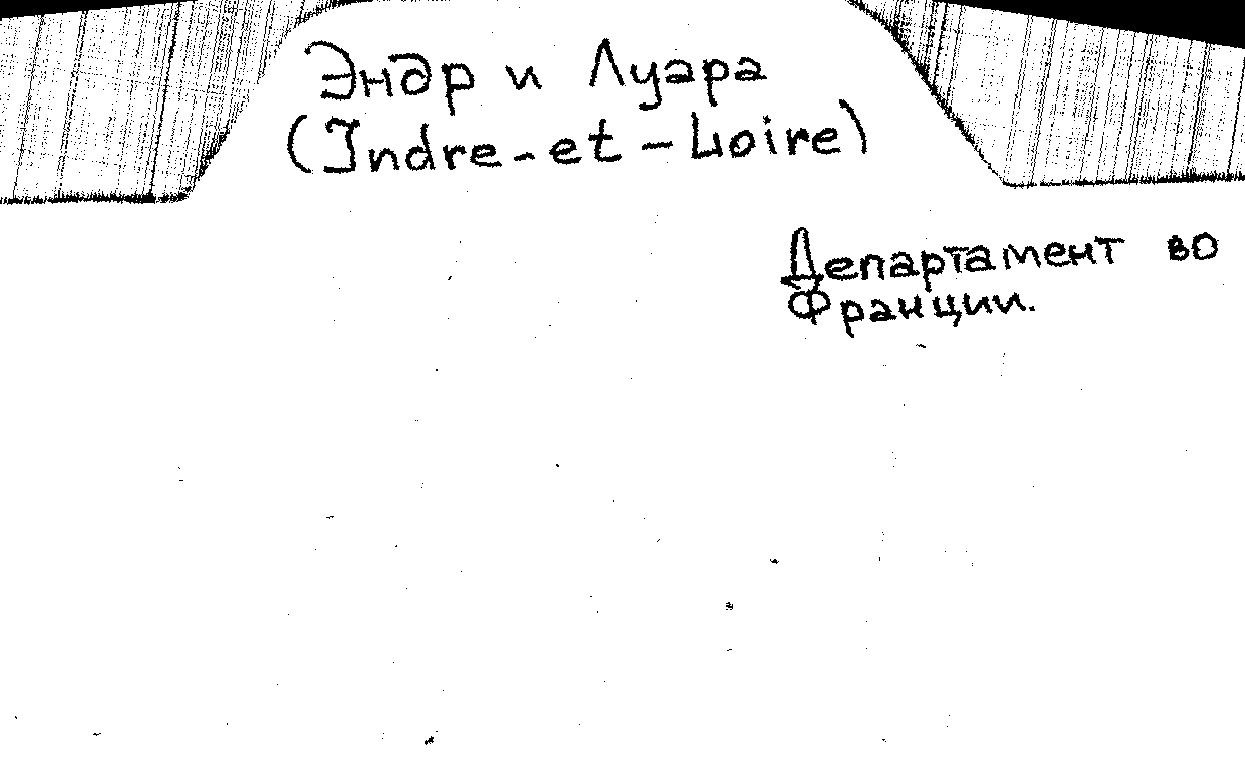 Эндр и Луара
(Indre-et-Loire)
Департамент во
Франции.